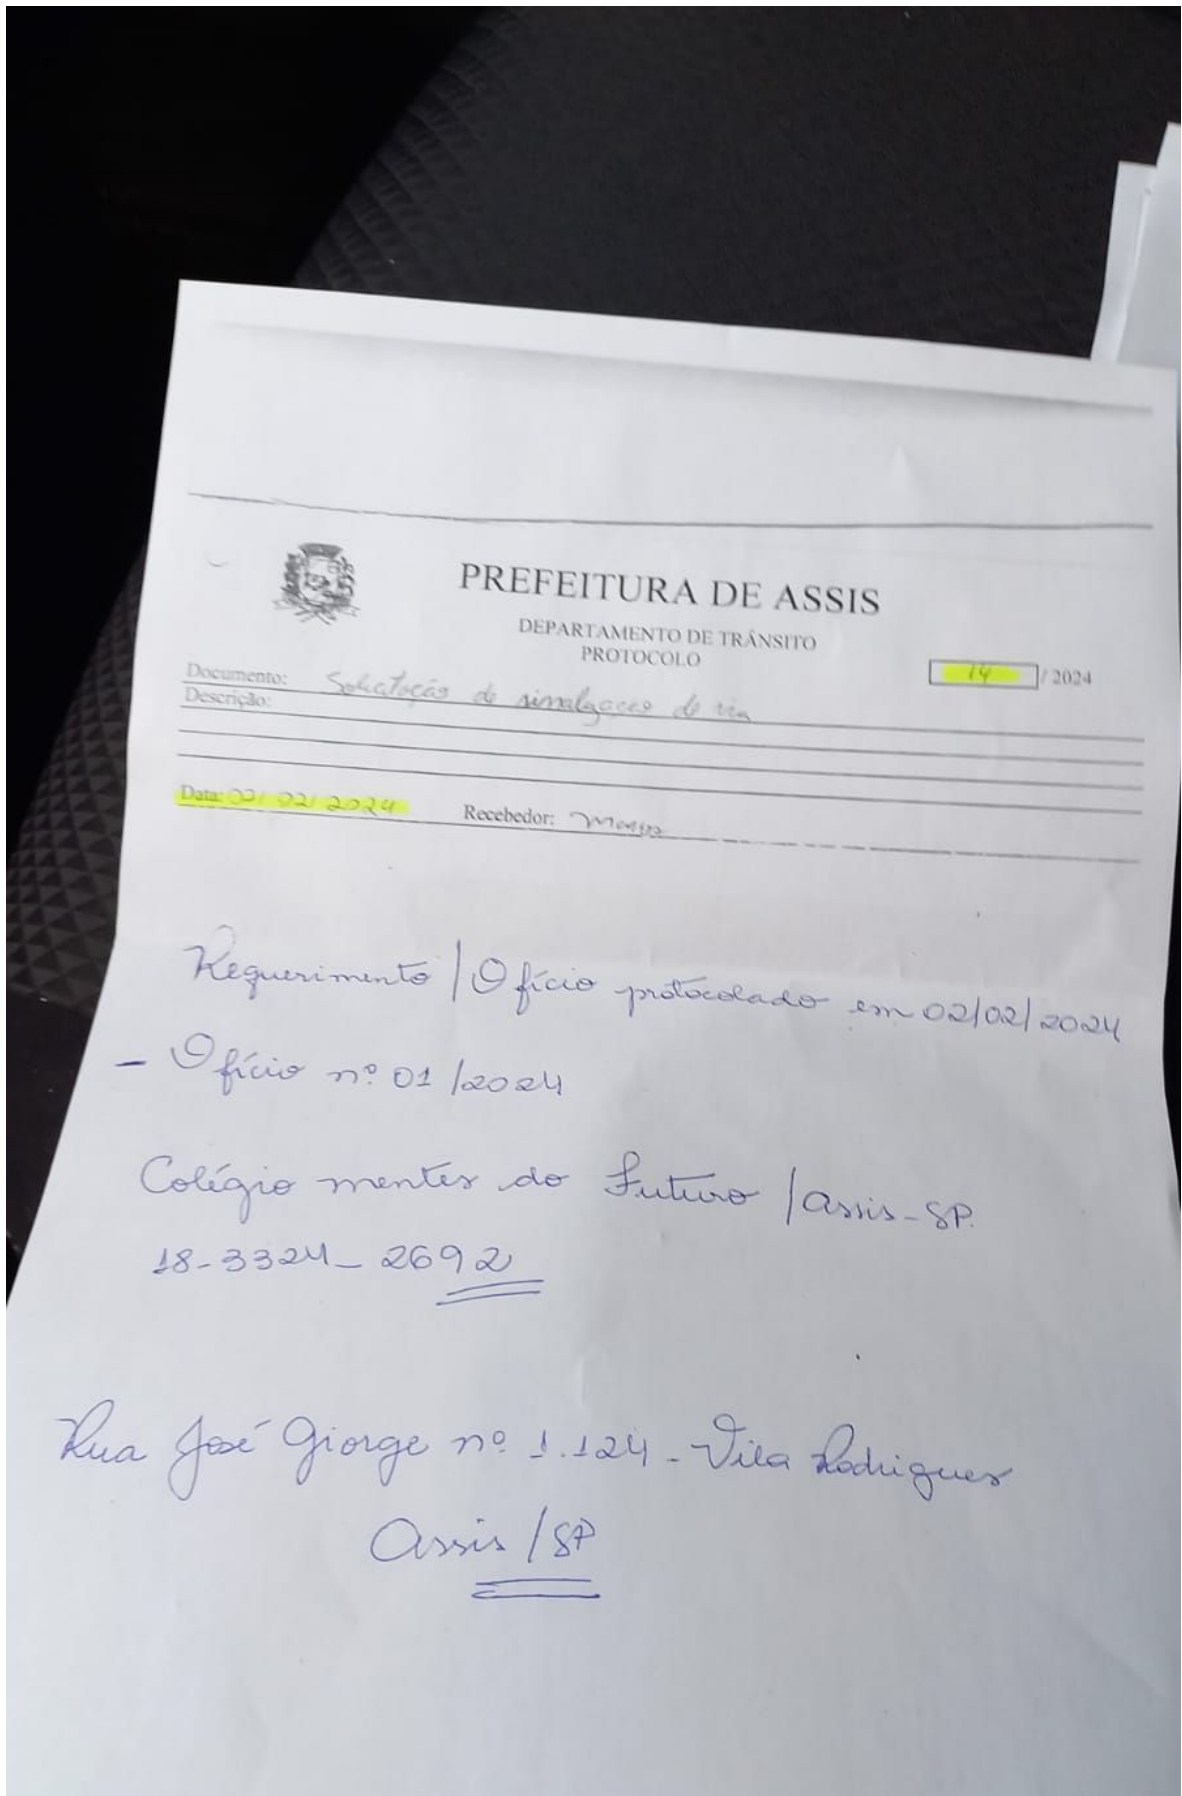 PREFEITURA DE ASSIS
DEPARTAMENTO DE TRÂNSITO
PROTOCOLO
14 / 2024
Documento: Solicitação de sinalização de via
Descrição:
Data: 02/02/2024 Recebedor:
Requerimento / Ofício protocolado em 02/02/2024
- Ofício nº 01/2024
Colégio mentes do Futuro / Assis-SP.
18-3324-2692
Rua José Giorge nº 1.124 - Vila Rodrigues
Assis / SP